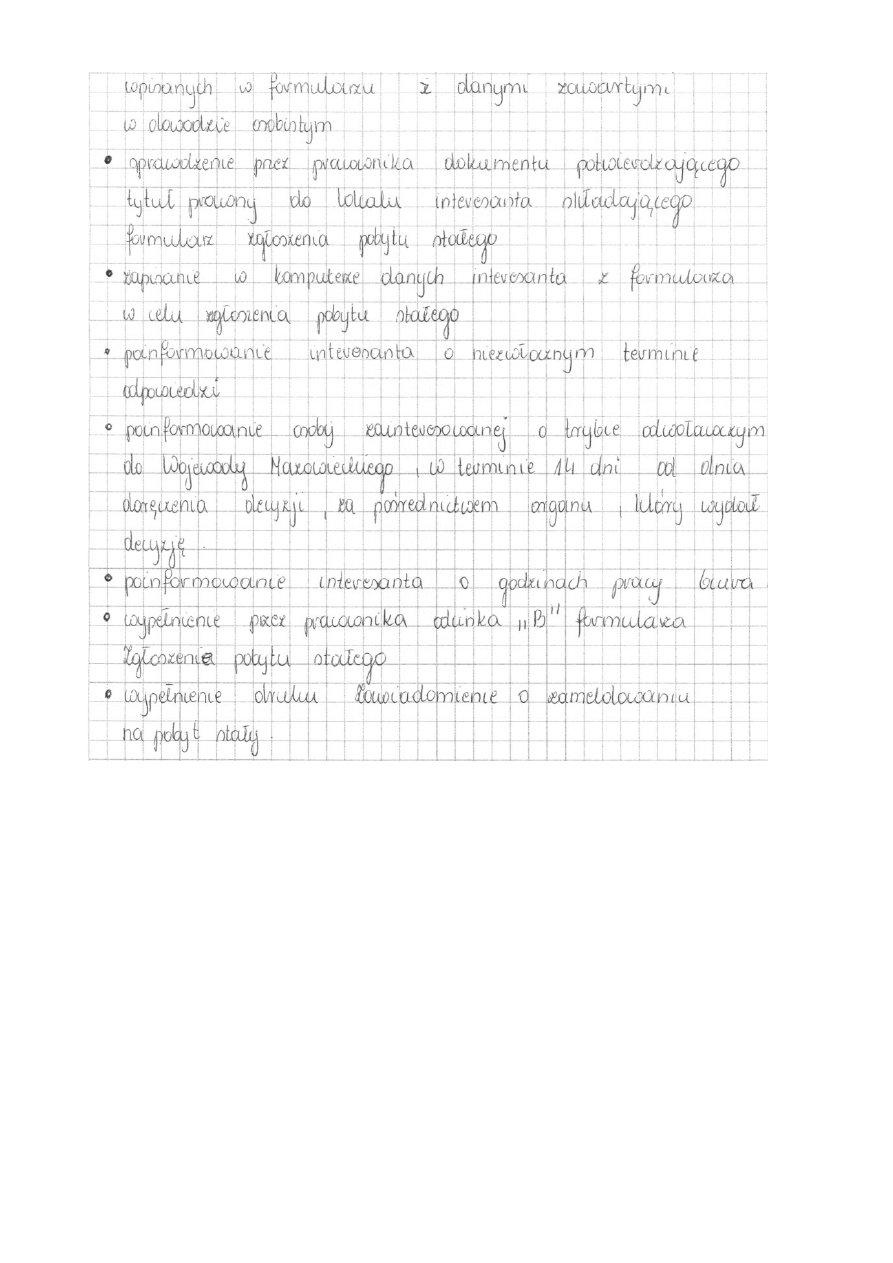 wpisanych w formularzu z danymi zawartymi
w dowodzie osobistym
• sprawdzenie przez pracownika dokumentu potwierdzającego
tytuł prawny do lokalu interesanta składającego
formularz zgłoszenia pobytu stałego
• zapisanie w komputerze danych interesanta z formularza
w celu zgłoszenia pobytu stałego
• poinformowanie interesanta o niezwłocznym terminie
odpowiedzi
• poinformowanie osoby zainteresowanej o trybie odwoławczym
do Wojewody Mazowieckiego, w terminie 14 dni od dnia
doręczenia decyzji, za pośrednictwem organu, który wydał
decyzję.
• poinformowanie interesanta o godzinach pracy biura
• wypełnienie przez pracownika odcinka „B" formularza
Zgłoszenie pobytu stałego
• wypełnienie druku Zawiadomienie o zameldowaniu
na pobyt stały.